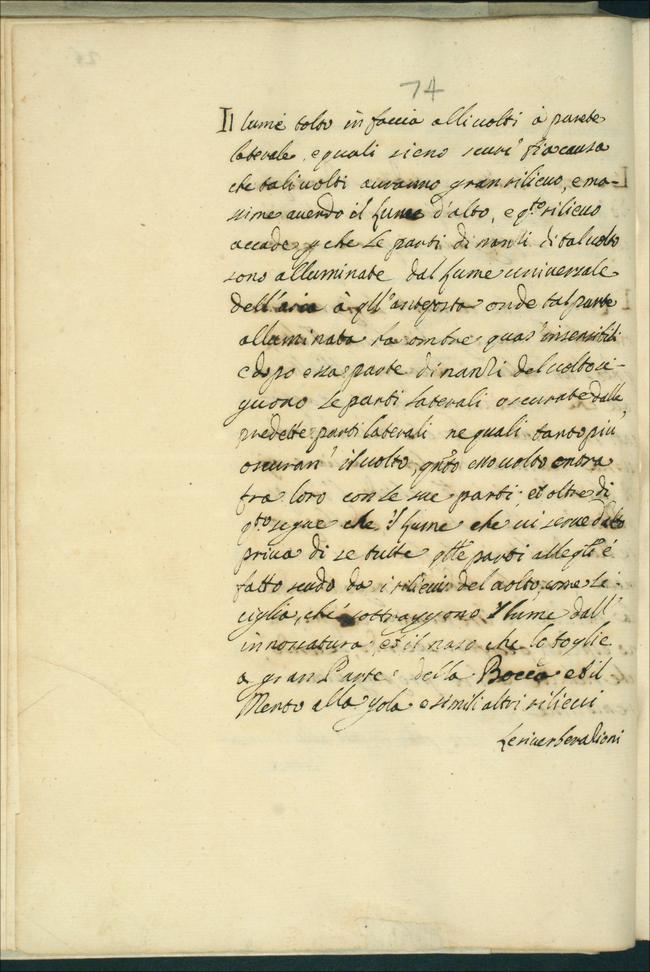 74
Il lume tolto in faccia alli uolti à parete
laterale, e quali sieno scuri fia causa
che tali uolti auranno gran rilieuo, e ma-
sime auendo il lume d'alto, e q.to rilieuo
accade, p che le parti dinanzi di tal uolto
sono alluminate dal lume uniuersale
dell'aria à gll'anteposta onde tal parte
alluminata ha ombre quas' insensibili
e dopo essa parte dinanzi del uolto si-
guono le parti laterali oscurate dalle
predette parti laterali ne quali tanto piu'
oscuran' il uolto, q.nto esso uolto entra
fra loro con le sue parti; et oltre di
q.to segue che il lume che ui scende d'alto
priua di se tutte q.lle parti alle q.li è
fatto scudo da i rilieui del uolto, come le
ciglia, che sottraggono il lume dall'
innossatura, et il naso che lo toglie
a gran Parte della Bocca et il
Mento alla gola e simili altri rilieui
Le riuerberationi